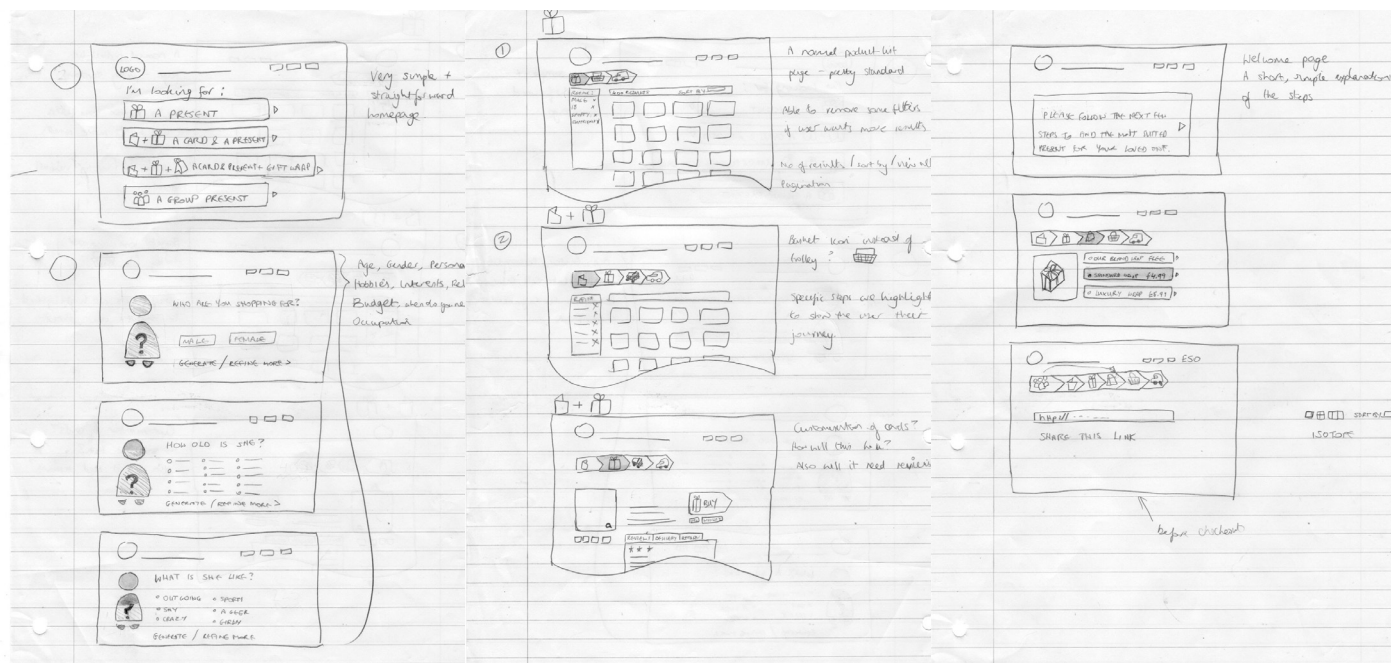 LOGO
I'm looking for:
A PRESENT
+ A CARD & A PRESENT
+ + A CARD & PRESENT + GIFT WRAP
A GROUP PRESENT
Very simple +
straightforward
homepage.
WHO ARE YOU SHOPPING FOR?
?
MALE FEMALE
GENERATE / REFINE MORE >
Age, Gender, Persona
Hobbies, Interests, Rel
Budget, when do you ne
Occupation
HOW OLD IS SHE?
?
GENERATE / REFINE MORE >
WHAT IS SHE LIKE?
?
OUTGOING SPORTY
SHY
CRAZY GIRLY
GENERATE / REFINE MORE
1
A normal product list
page - pretty standard
Able to remove some filters
if user wants more results
No of results / sort by / view all
Pagination
+
2
Basket icon instead of
trolley?
Specific steps are highlight
to show the user their
journey
+
Customisation of cards?
How will this look?
Also will it need reviews
BUY
REVIEWS DELIVERY
Welcome page
A short, simple explanation
of the steps
PLEASE FOLLOW THE NEXT FEW
STEPS TO FIND THE MOST SUITED
PRESENT FOR YOUR LOVED ONE.
OUR BRAND WRAP FREE
STANDARD WRAP £4.99
LUXURY WRAP
ESO
http://
SHARE THIS LINK
ISOTOPE
before checkout